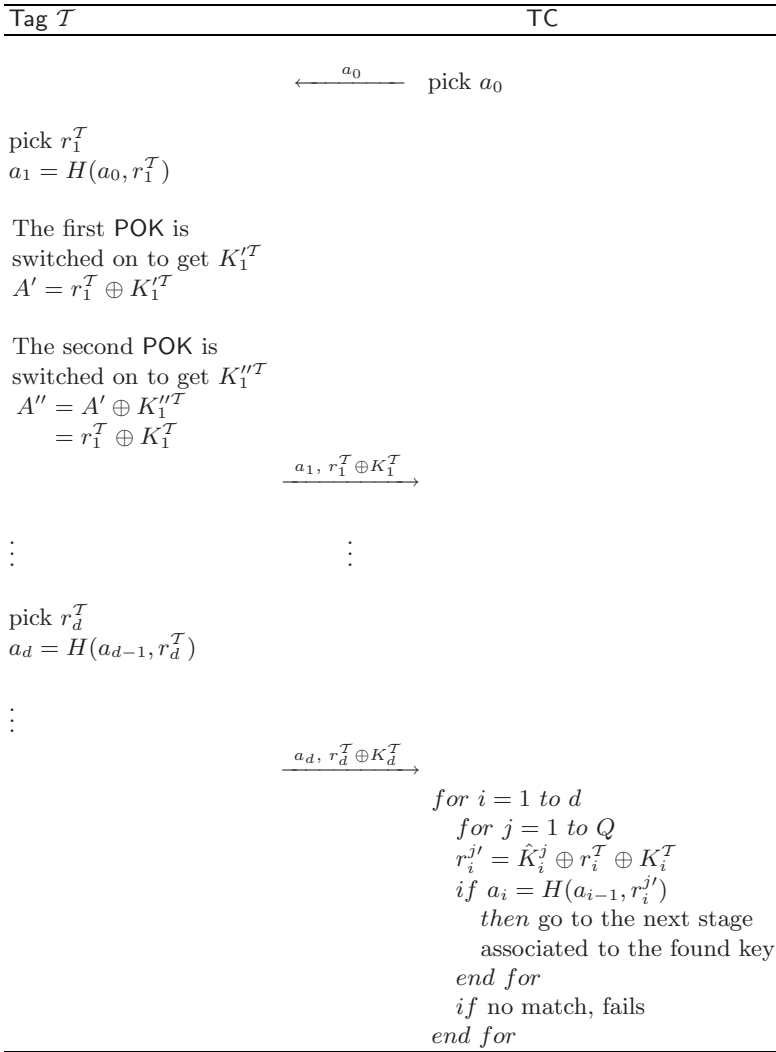 Tag 𝒯 TC
a₀
← pick a₀
pick r₁^𝒯
a₁ = H(a₀, r₁^𝒯)
The first POK is
switched on to get K′₁^𝒯
A′ = r₁^𝒯 ⊕ K′₁^𝒯
The second POK is
switched on to get K″₁^𝒯
A″ = A′ ⊕ K″₁^𝒯
= r₁^𝒯 ⊕ K₁^𝒯
a₁, r₁^𝒯 ⊕ K₁^𝒯
→
⋮ ⋮
pick r_d^𝒯
a_d = H(a_{d−1}, r_d^𝒯)
⋮
a_d, r_d^𝒯 ⊕ K_d^𝒯
→
for i = 1 to d
for j = 1 to Q
r_i^{j′} = K̂_i^j ⊕ r_i^𝒯 ⊕ K_i^𝒯
if a_i = H(a_{i−1}, r_i^{j′})
then go to the next stage
associated to the found key
end for
if no match, fails
end for